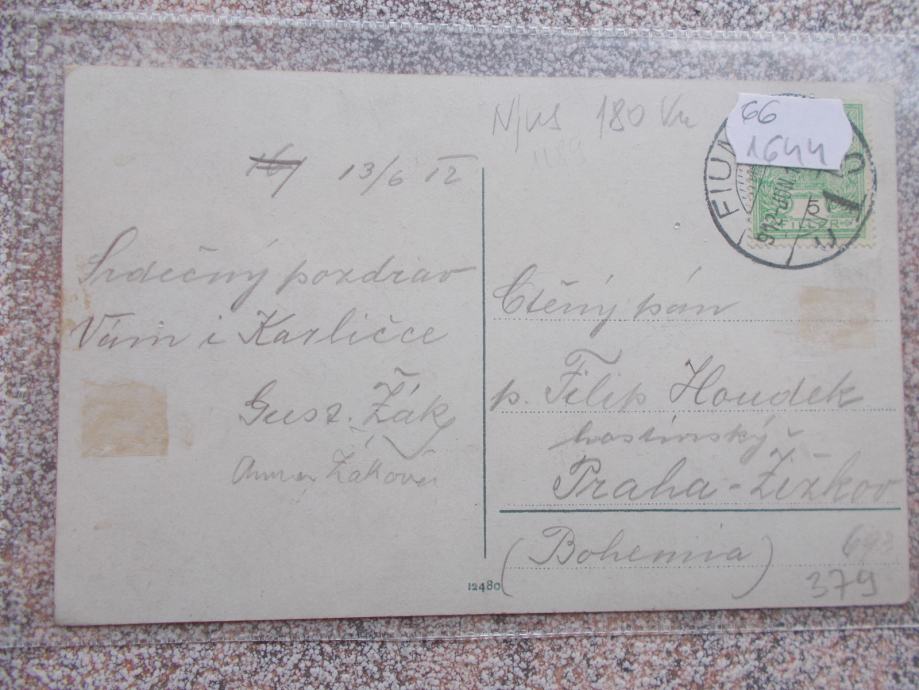 180
66
1644
FIUM
912 JUN.
5
13/6 12
Srdečný pozdrav
Vám i Karličce
Gust. Žák
Anna Žáková
Ctěný pán
p. Filip Houdek
hostinský
Praha-Žižkov
(Bohemia)
12480
379